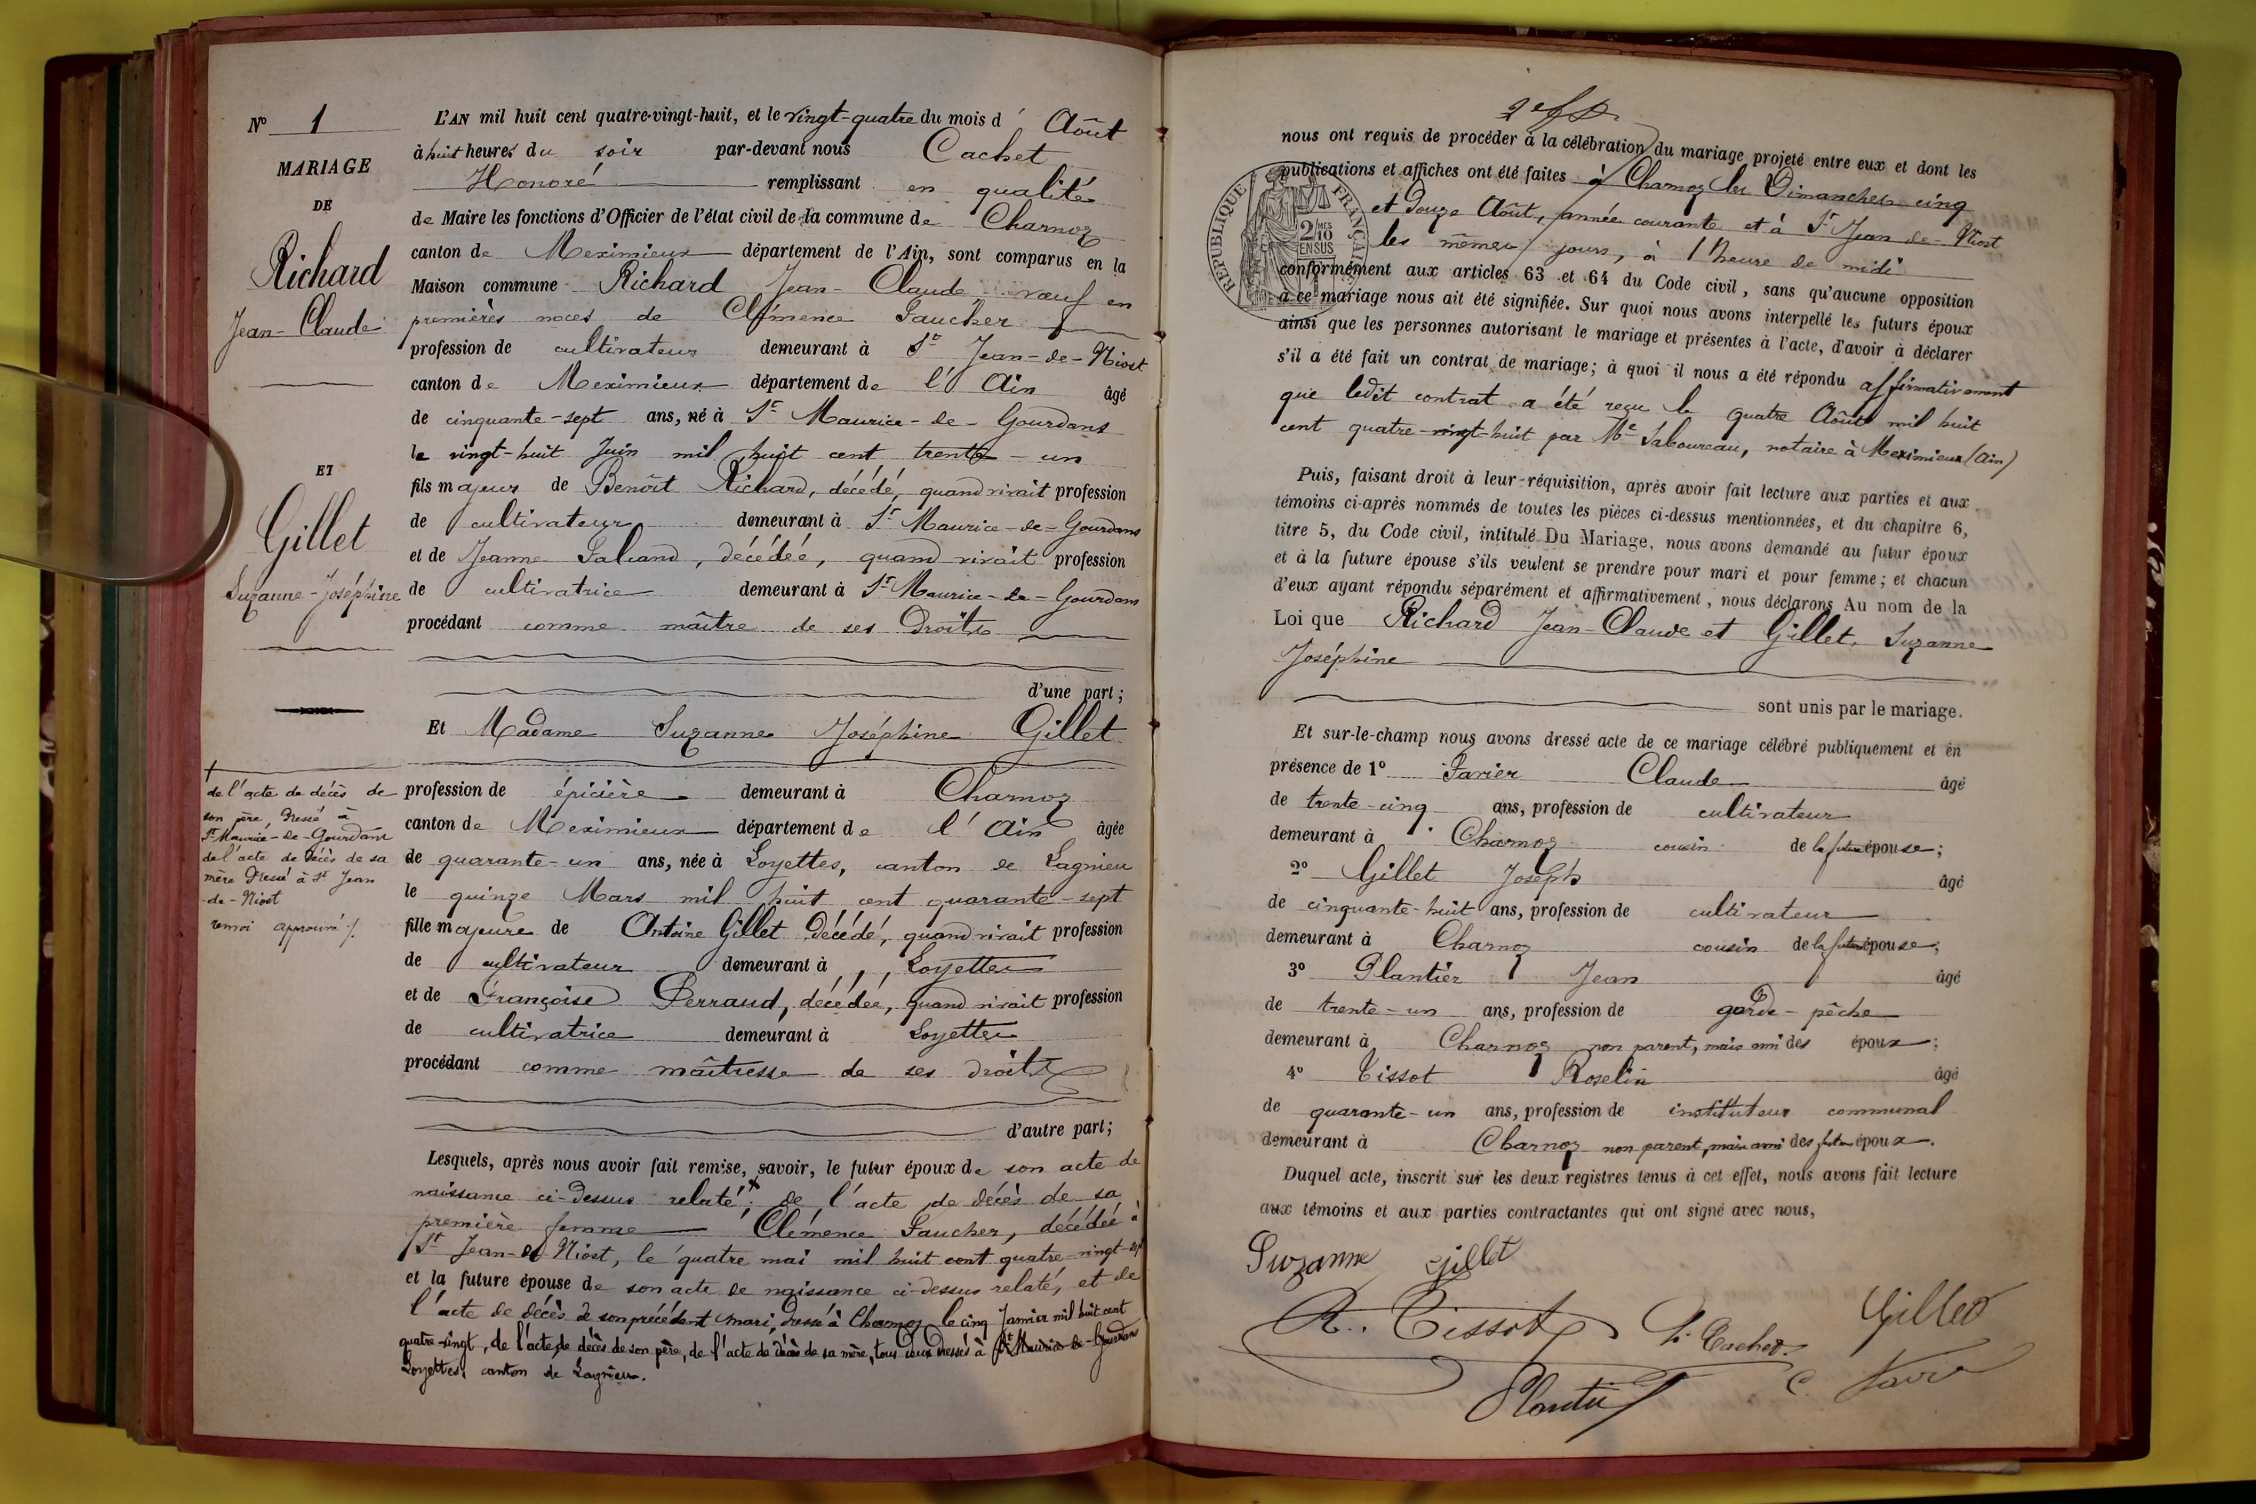 N° 1
MARIAGE
DE
Richard
Jean-Claude
ET
Gillet
Suzanne-Joséphine
de l'acte de décès de
son père, dressé à
St Maurice-de-Gourdans
de l'acte de décès de sa
mère dressé à St Jean
-de-Niost
renvoi approuvé
L'AN mil huit cent quatre-vingt-huit, et le vingt-quatre du mois d' Août
à huit heures du soir par-devant nous Cachet
Honoré remplissant en qualité
de Maire les fonctions d'Officier de l'état civil de la commune de Charnoz
canton de Meximieux département de l'Ain, sont comparus en la
Maison commune Richard Jean-Claude veuf en
premières noces de Clémence Saucher
profession de cultivateur demeurant à St Jean-de-Niost
canton de Meximieux département de l'Ain âgé
de cinquante-sept ans, né à St Maurice-de-Gourdans
le vingt-huit Juin mil huit cent trente-un
fils majeur de Benoît Richard, décédé, quand vivait profession
de cultivateur demeurant à St Maurice-de-Gourdans
et de Jeanne Saliand, décédée, quand vivait profession
de cultivatrice demeurant à St Maurice-de-Gourdans
procédant comme maître de ses Droits
d'une part;
Et Madame Suzanne Joséphine Gillet
profession de épicière demeurant à Charnoz
canton de Meximieux département de l'Ain âgée
de quarante-un ans, née à Loyettes, canton de Lagnieu
le quinze Mars mil huit cent quarante-sept
fille majeure de Antoine Gillet Décédé, quand vivait profession
de cultivateur demeurant à Loyettes
et de Françoise Perraud, décédée, quand vivait profession
de cultivatrice demeurant à Loyettes
procédant comme maîtresse de ses droits
d'autre part;
Lesquels, après nous avoir fait remise, savoir, le futur époux de son acte de
naissance ci-dessus relaté; de l'acte de décès de sa
première femme Clémence Saucher, décédée à
St Jean-de-Niost, le quatre mai mil huit cent quatre-vingt-sept
et la future épouse de son acte de naissance ci-dessus relaté, et de
l'acte de décès de son précédent mari, dressé à Charnoz le cinq Janvier mil huit cent
quatre-vingt, de l'acte de décès de son père, de l'acte de décès de sa mère, tous deux dressés à St Maurice-de-Gourdans
Loyettes, canton de Lagnieu.
nous ont requis de procéder à la célébration du mariage projeté entre eux et dont les
publications et affiches ont été faites à Charnoz les Dimanches cinq
et douze Août, année courante et à St Jean-de-Niost
les mêmes jours, à 1 heure de midi
conformément aux articles 63 et 64 du Code civil, sans qu'aucune opposition
à ce mariage nous ait été signifiée. Sur quoi nous avons interpellé les futurs époux
ainsi que les personnes autorisant le mariage et présentes à l'acte, d'avoir à déclarer
s'il a été fait un contrat de mariage; à quoi il nous a été répondu affirmativement
que ledit contrat a été reçu le quatre Août mil huit
cent quatre-vingt-huit par Me Saboureau, notaire à Meximieux (Ain)
RÉPUBLIQUE FRANÇAISE
2/10
EN SUS
Puis, faisant droit à leur réquisition, après avoir fait lecture aux parties et aux
témoins ci-après nommés de toutes les pièces ci-dessus mentionnées, et du chapitre 6,
titre 5, du Code civil, intitulé Du Mariage, nous avons demandé au futur époux
et à la future épouse s'ils veulent se prendre pour mari et pour femme; et chacun
d'eux ayant répondu séparément et affirmativement, nous déclarons Au nom de la
Loi que Richard Jean-Claude et Gillet, Suzanne
Joséphine
sont unis par le mariage.
Et sur-le-champ nous avons dressé acte de ce mariage célébré publiquement et en
présence de 1° Favier Claude âgé
de trente-cinq ans, profession de cultivateur
demeurant à Charnoz cousin de la future épouse;
2° Gillet Joseph âgé
de cinquante-huit ans, profession de cultivateur
demeurant à Charnoz cousin de la future épouse;
3° Plantier Jean âgé
de trente-un ans, profession de garde-pêche
demeurant à Charnoz non parent, mais ami des époux;
4° Tissot Roselin âgé
de quarante-un ans, profession de instituteur communal
demeurant à Charnoz non parent, mais ami des futurs époux.
Duquel acte, inscrit sur les deux registres tenus à cet effet, nous avons fait lecture
aux témoins et aux parties contractantes qui ont signé avec nous,
Suzanne Gillet
R. Tissot h. Cachet Gillet
Plantier C. Favier